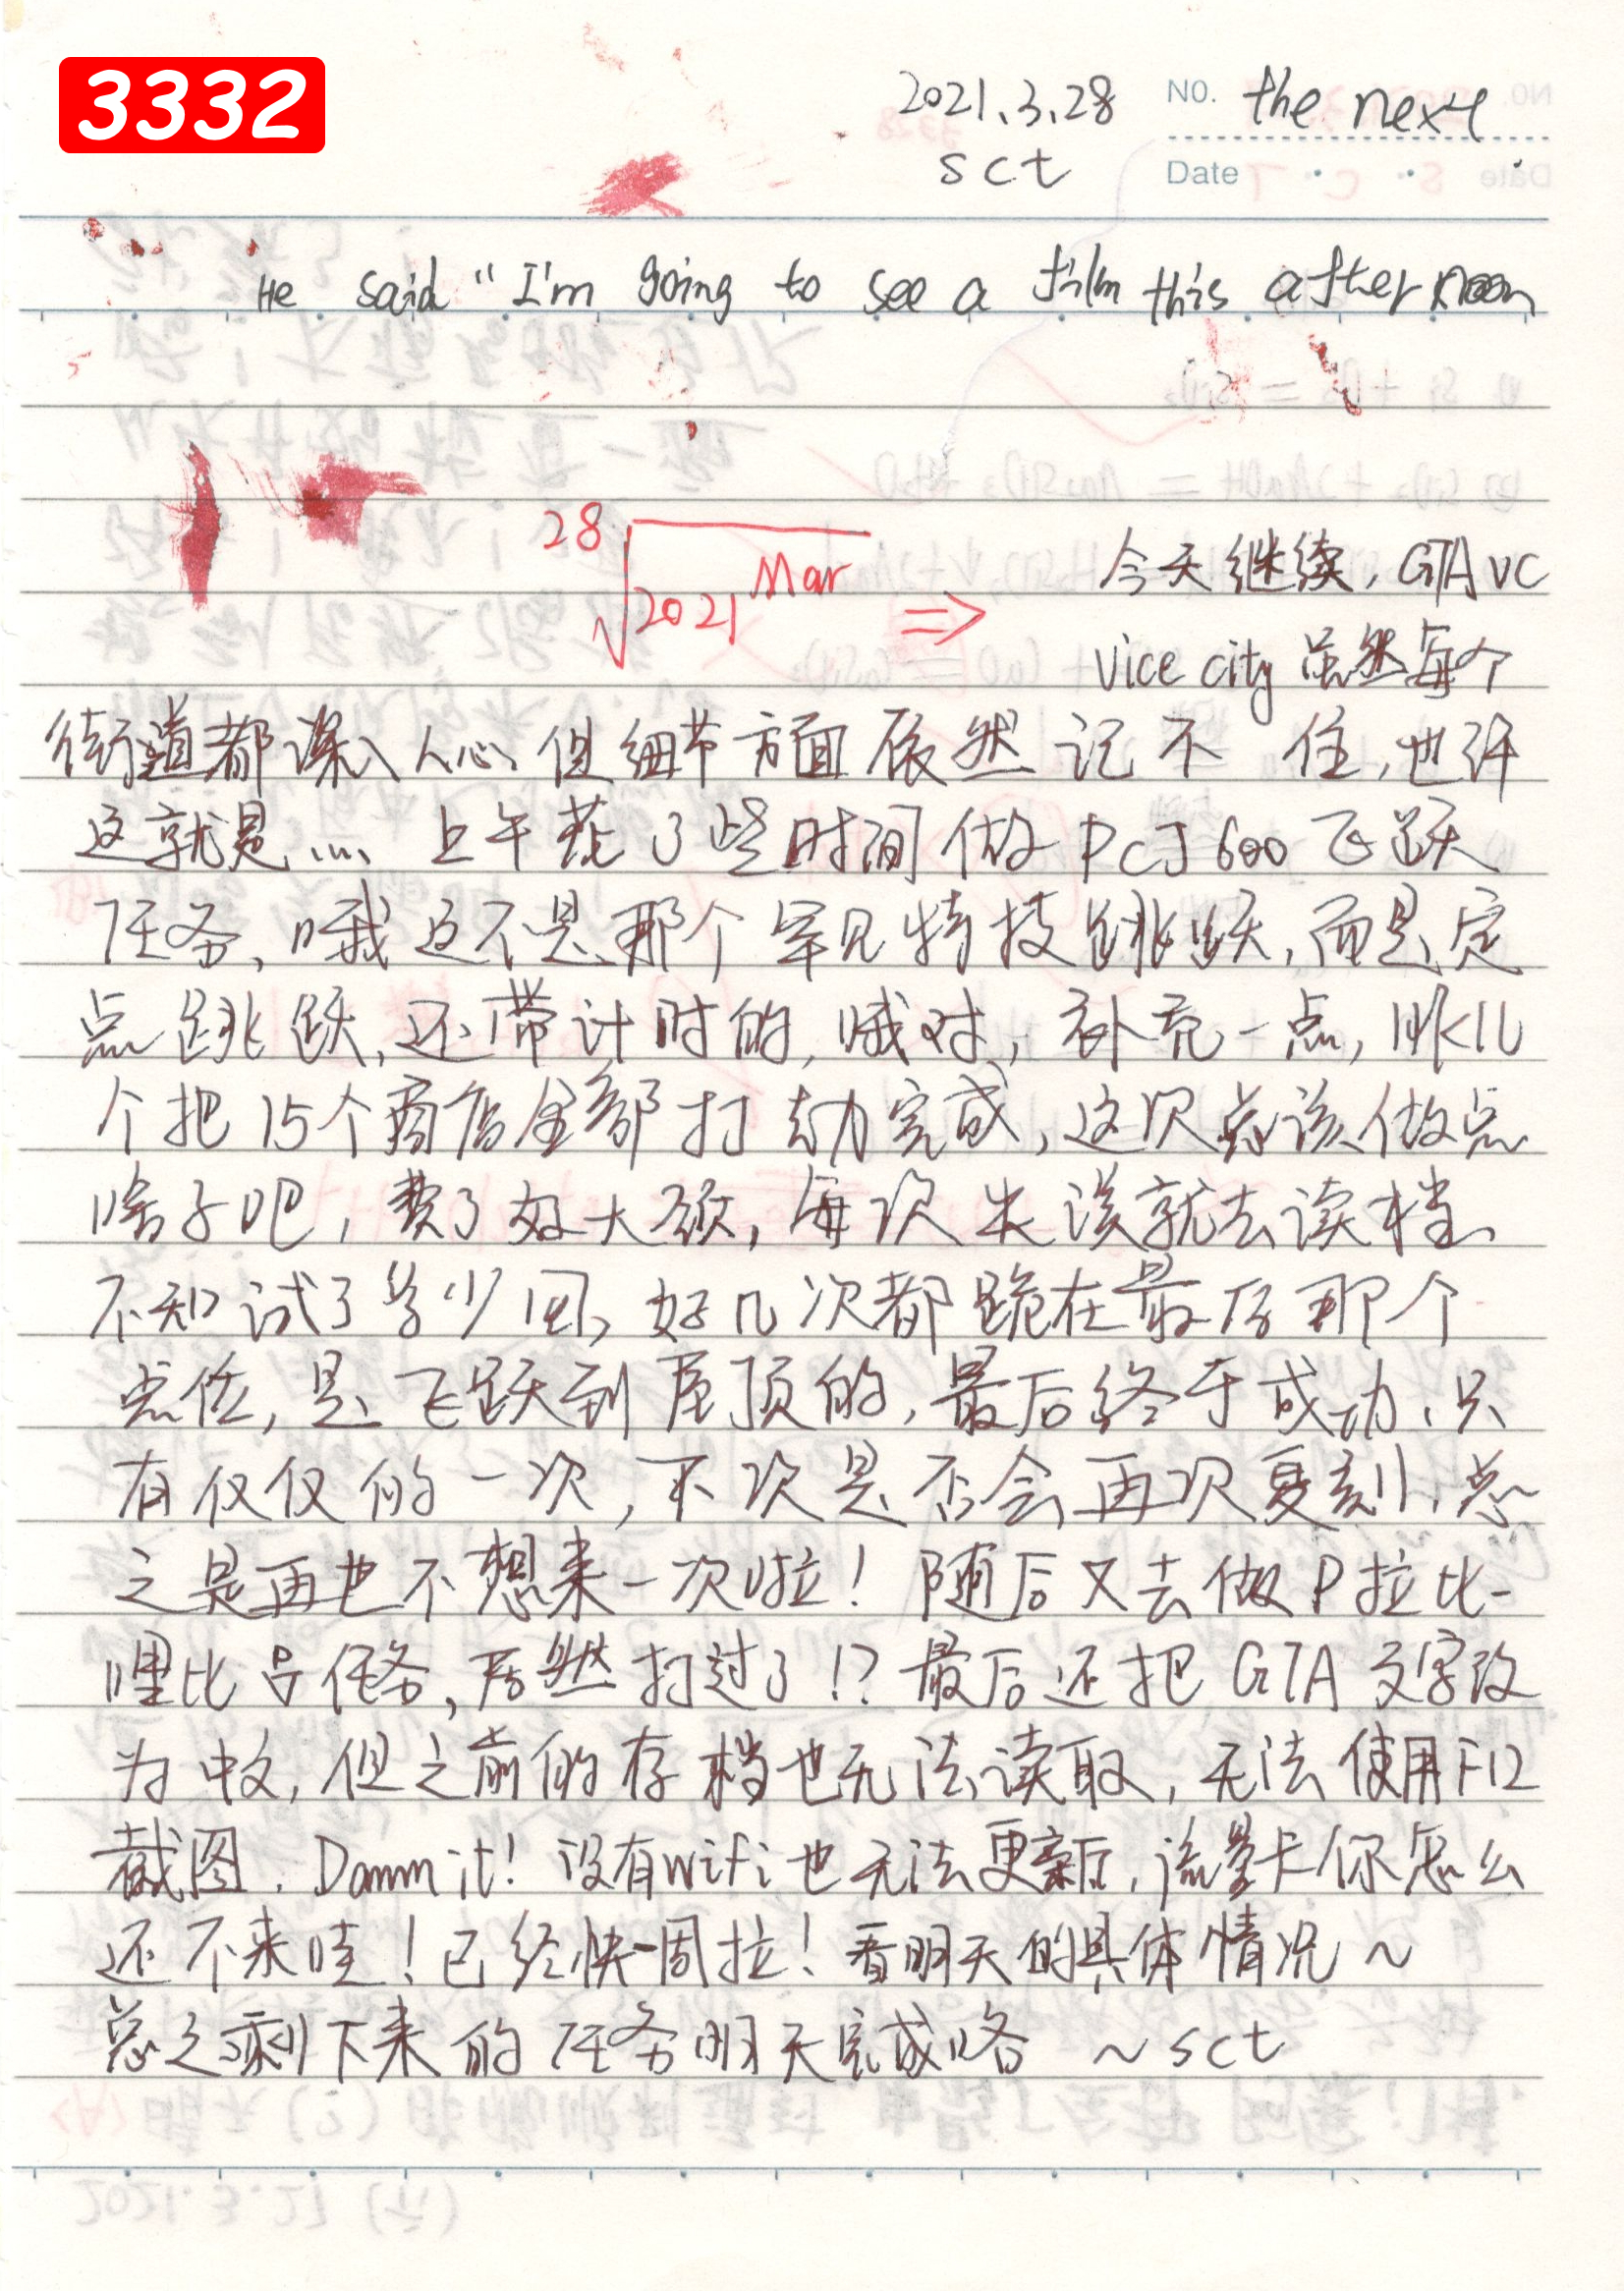 3332
2021.3.28 NO. the next
sct Date
He said "I'm going to see a film this afternoon
28√2021 Mar ⇒ 今天继续, GTA VC
Vice city 虽然每个
街道都深入人心、但细节方面依然记不住,也许
这就是…、上午花了些时间做PCJ600飞跃
任务、哦这不是那个罕见特技跳跃,而是定
点跳跃,还带计时的,哦对,补充一点,昨儿
个把15个商店全部打劫完成,这次应该做点
啥子吧,费了好大颈,每次失误就去读档、
不知试了多少回、好几次都跪在最后那个
点位,是飞跃到屋顶的,最后终于成功、只
有仅仅的一次,下次是否会再次复刻、总
之是再也不想来一次啦!随后又去做P拉比-
哩比 任务,居然打过了!?最后还把GTA文字改
为中文,但之前的存档也无法读取,无法使用F12
截图.Damm it!没有wifi也无法更新,流量卡你怎么
还不来哇!已经快一周拉!看明天的具体情况~
总之剩下来的任务明天完成咯 ~sct
2021.3.27(六)